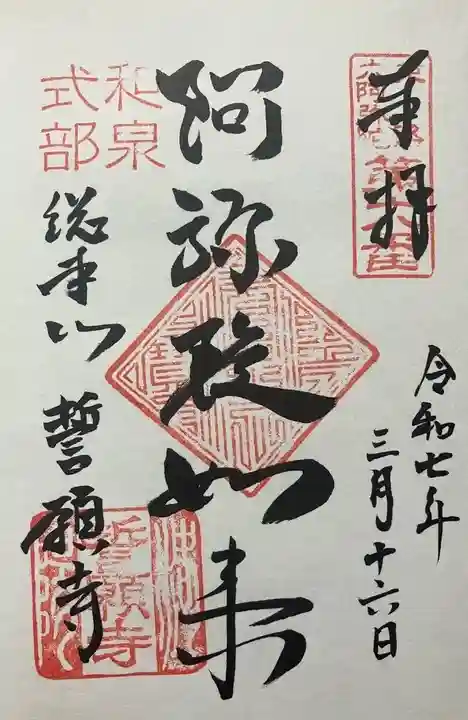 奉拝
令和七年
三月十六日
阿弥陀如来
和泉
式部
総本山 誓願寺
誓願寺